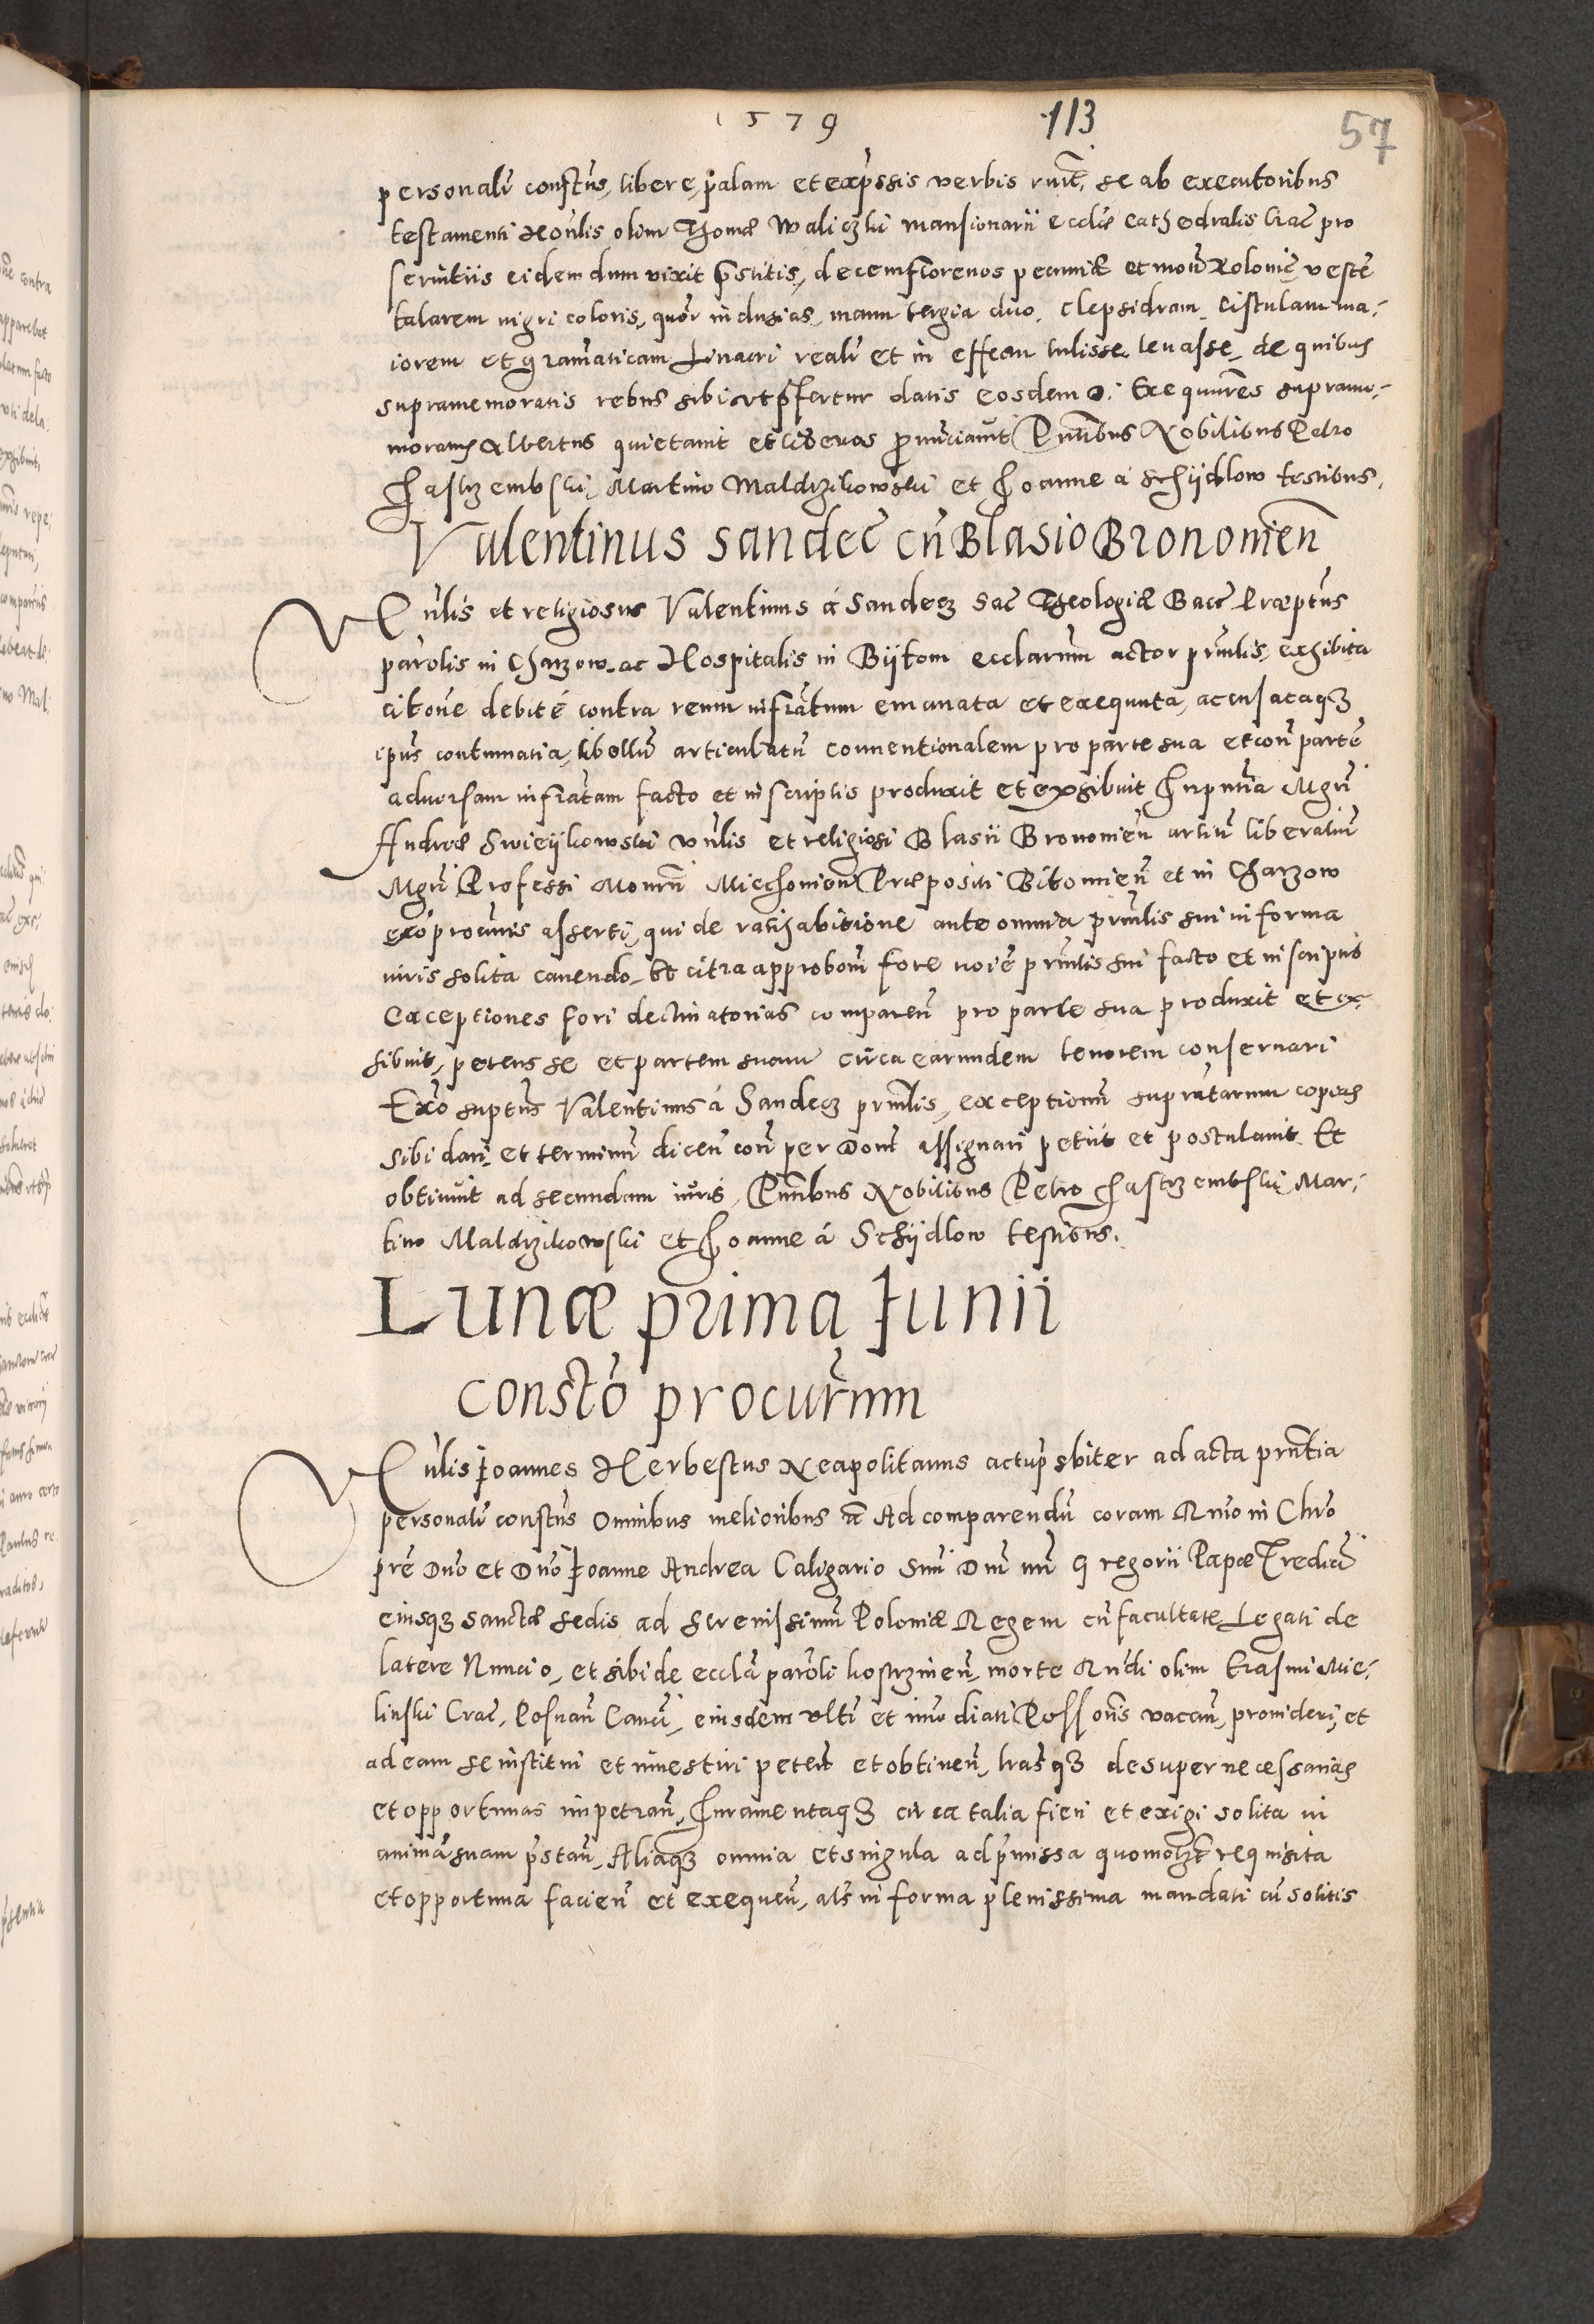 1579 113 57
personalr constus, libere, palam et exprssis verbis rcuit, se ab executoribus
testamenti Honlis olim Thomæ Waliczki mansionarii ecclie cathedralis Crac pro
seruitiis eidem dum vixit prstitis, decem florenos pecuniæ et mon Polonic, veste
talarem nigri coloris, quor indusias, manutergia duo, Clepsidram, Cistulam ma-
iorem et gramaticam Linacri realr et in effectu tulisse leuasse, de quibus
supramemoratis rebus sibi ut prfertur datis eosdem Exequutores suprame-
moratus Albertus quietauit et liberos pronuciauit Prntibus Nobilibus Petro
Jastrzembski, Martino Maldrzikowski et Joanne á Schijdlow testibus.
Valentinus Sandec cu Blasio Bronomien
Vnlis et religiosus Valentinus á Sandecz Sac Theologiæ Bacc Præptus
parolis in Charzow ac Hospitalis in Bijtom ecclarum actor prnlis, exhibita
citone debité contra reum infratum emanata et exequuta, acensataqz
ipus contumatia, libellu articulatu conuentionalem pro parte sua et con parte
aduersam infratam facto et in scriptis produxit et exhibuit In prntia Mgri
Andreæ Swieijkowski vnlis et religiosi Blasii Bronomien artiu liberaliu
Mgri Professi Monrii Miechouien Præpositi Bitomien et in Charzow
exo procuris asserti, qui de ratihabitione ante omnia prnlis sui in forma
iuris solita cauendo, Et citra approbom fore noie prnlis sui facto et in scriptis
Exceptiones fori declinatorias comparen pro parte sua produxit et ex-
hibuit, petens se et partem suam circa earundem tenorem conseruari
Exo suptus Valentinus á Sandecz prnlis, exceptionu supratarum copias
sibi dari, et terminu dicen con per Dom assignari petiit et postulauit Et
obtinuit ad secundam iuris, Prntibus Nobilibus Petro Jastrzembski, Mar-
tino Maldrzikowski et Joanne á Schijdlow testibus.
Lunæ prima Junii
Consto procurum
Vnlis Joannes Herbestus Neapolitanus actu prsbiter ad acta prntia
personalr constus Omnibus melioribus Ad comparendu coram Rmo in Chro
pre Dno et Dno Joanne Andrea Caligario Smi Dni nri Gregorii Papæ Tredeci
eiusqz sanctæ sedis ad Serenissimu Poloniæ Regem cu facultate Legati de
latere Nuncio, et sibi de eccla paroli kostrzinen, morte Rndi olim Erasmi Mie-
linski Crac, Posnan Canci, eiusdem vlti et imediati Possoris vacan, prouideri, et
ad eam se institui et inuestiri peten et obtinen, lrasqz desuper necessarias
et opportunas impetran, Juramentaqz circa talia fieri et exigi solita in
anima suam prstan, Aliaqz omnia et singula ad prmissa quomolzt requisita
et opportuna facien et exequen, als in forma plenissima mandati cu solitis